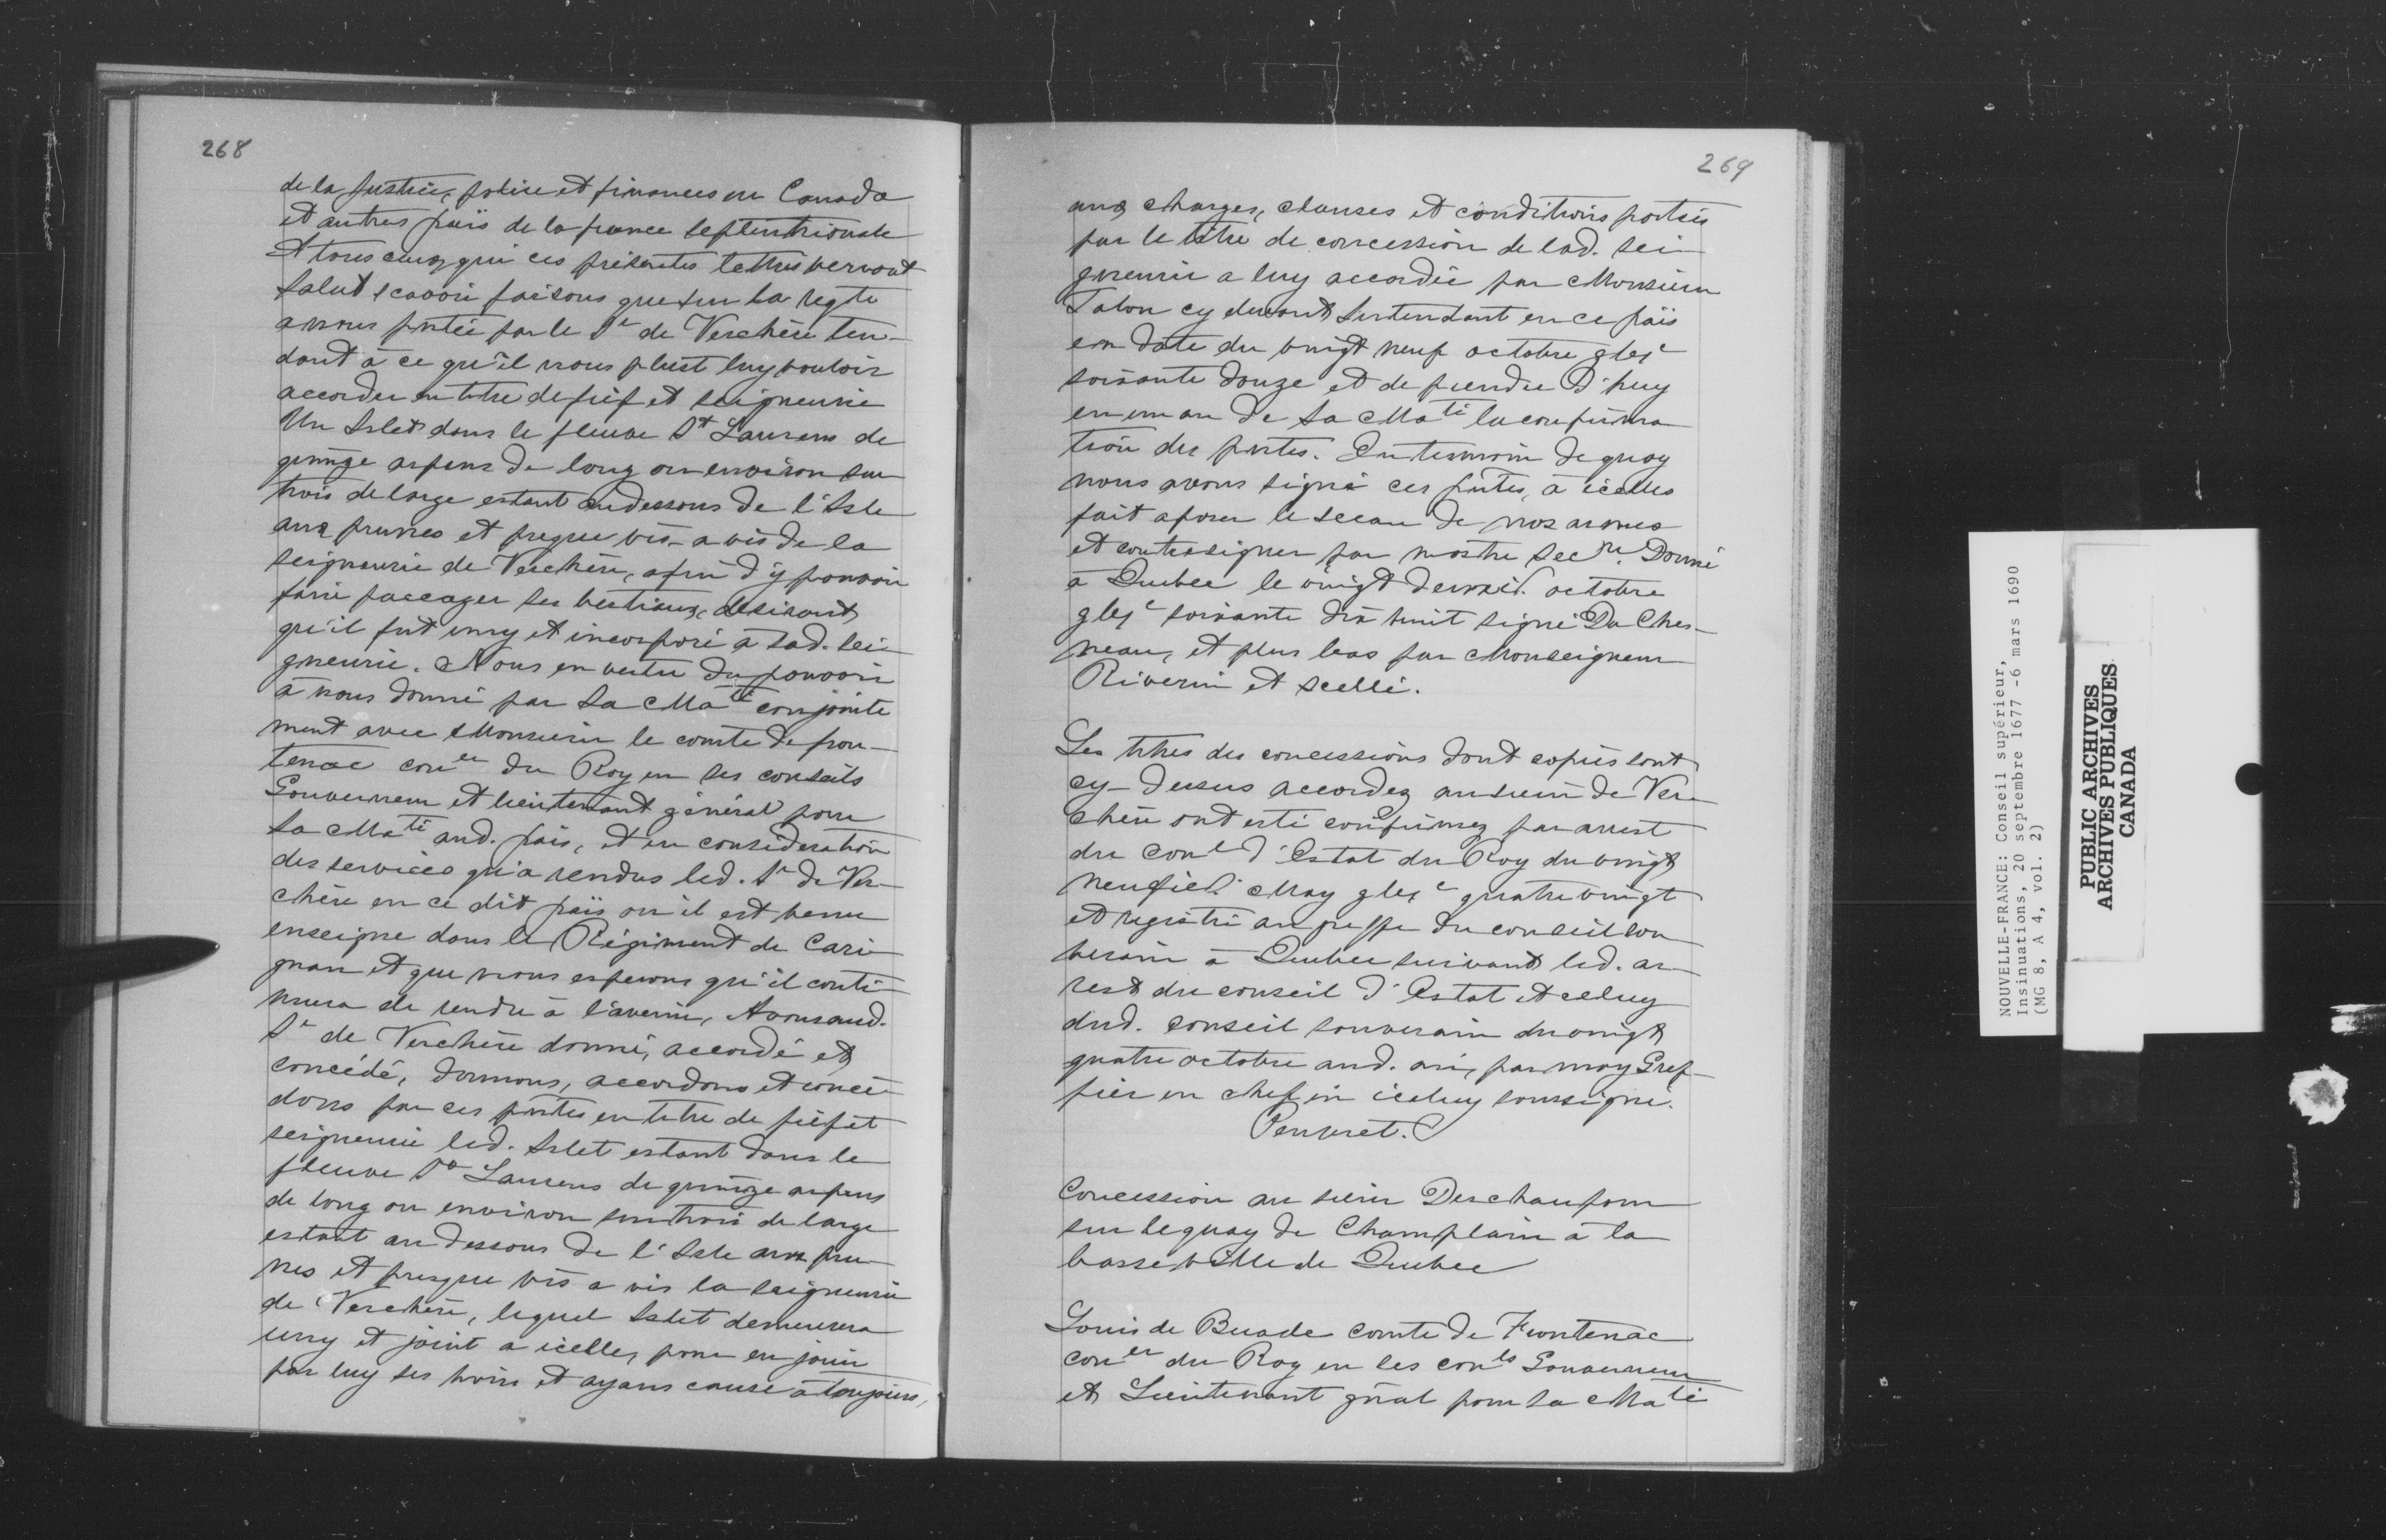 268
de la Justice, police et finances en Canada
et autres païs de la france septentrionale
A tous ceux qui ces présentes lettres verront
Salut scavoir faisons que sur la reqte
a nous pntée par le Sr de Verchère ten-
dant à ce qu'il nous plust luy vouloir
accorder en titre de fief et seigneurie
Un Islet dans le fleuve St Laurens de
quinze arpens de long ou environ sur
trois de large estant audessous de l'Isle
aux prunes et presque vis-a vis de la
seigneurie de Verchère, afin d'y pouvoir
faire paccager ses bestiaux, desirant
qu'il fut uny et incorporé à sad. sei-
gneurie. Nous en vertu du pouvoir
à nous donné par Sa Maté conjointe
ment avec Monsieur le comte de fron-
tenac coner du Roy en ses conseils
Gouverneur et lieutenant général pour
Sa Maté aud. païs, et en consideration
des services qu'a rendus led. Sr de Ver-
chère en ce dit païs ou il est venu
enseigne dans le Régiment de Cari-
gnan et que nous esperons qu'il conti-
nuera de rendre à l'avenir, Avons aud.
Sr de Verchère donné, accordé et
concédé, donnons, accordons et concé-
dons par ces pntes en titre de fief et
seigneurie led. Islet estant dans le
fleuve St Laurens de quinze arpens
de long ou environ sur trois de large
estant au dessous de l'Isle aux pru-
nes et presque vis a vis la seigneurie
de Verchère, lequel Islet demeurera
uny et joint a icelle, pour en jouir
par luy ses hoirs et ayans cause à toujours,
269
aux charges, clauses et conditions portées
par le titre de concession de lad. sei-
gneurie a luy accordée par Monsieur
Talon cy devant Intendant en ce païs
en date du vingt neuf octobre gbjc
soixante douze et de prendre d'huy
en un an de Sa Maté la confirma
tion des pntes. En temoin de quoy
nous avons signé ces pntes, à icelles
fait aposer le sceau de nos armes
et contresigner par nostre secre. Donné
à Quebec le vingt deuxie. octobre
gbjc soixante dix huit signé Du Ches-
neau, et plus bas par Monseigneur
Riverin et scellé.
Les titres des concessions dont copies sont
cy-dessus accordez au sieur de Ver-
chère ont esté confirmez par arrest
du conl d'Estat du Roy du vingt
neufie. May gbjc quatre vingt
et registré au greffe du conseil sou
verain à Quebec suivant led. ar-
rest du conseil d'Estat et celuy
dud. conseil souverain du vingt
quatre octobre aud. an, par moy Gref-
fier en chef en iceluy soussigné.
Peuvret.
Concession au sieur Deschaufour
sur le quay de Champlain à la
basse ville de Quebec
Louis de Buade comte de Frontenac
coner du Roy en ses conls Gouverneur
et Lieutenant gñal pour Sa Maté
NOUVELLE-FRANCE: Conseil supérieur,
Insinuations, 20 septembre 1677 -6 mars 1690
(MG 8, A 4, vol. 2)
PUBLIC ARCHIVES
ARCHIVES PUBLIQUES
CANADA